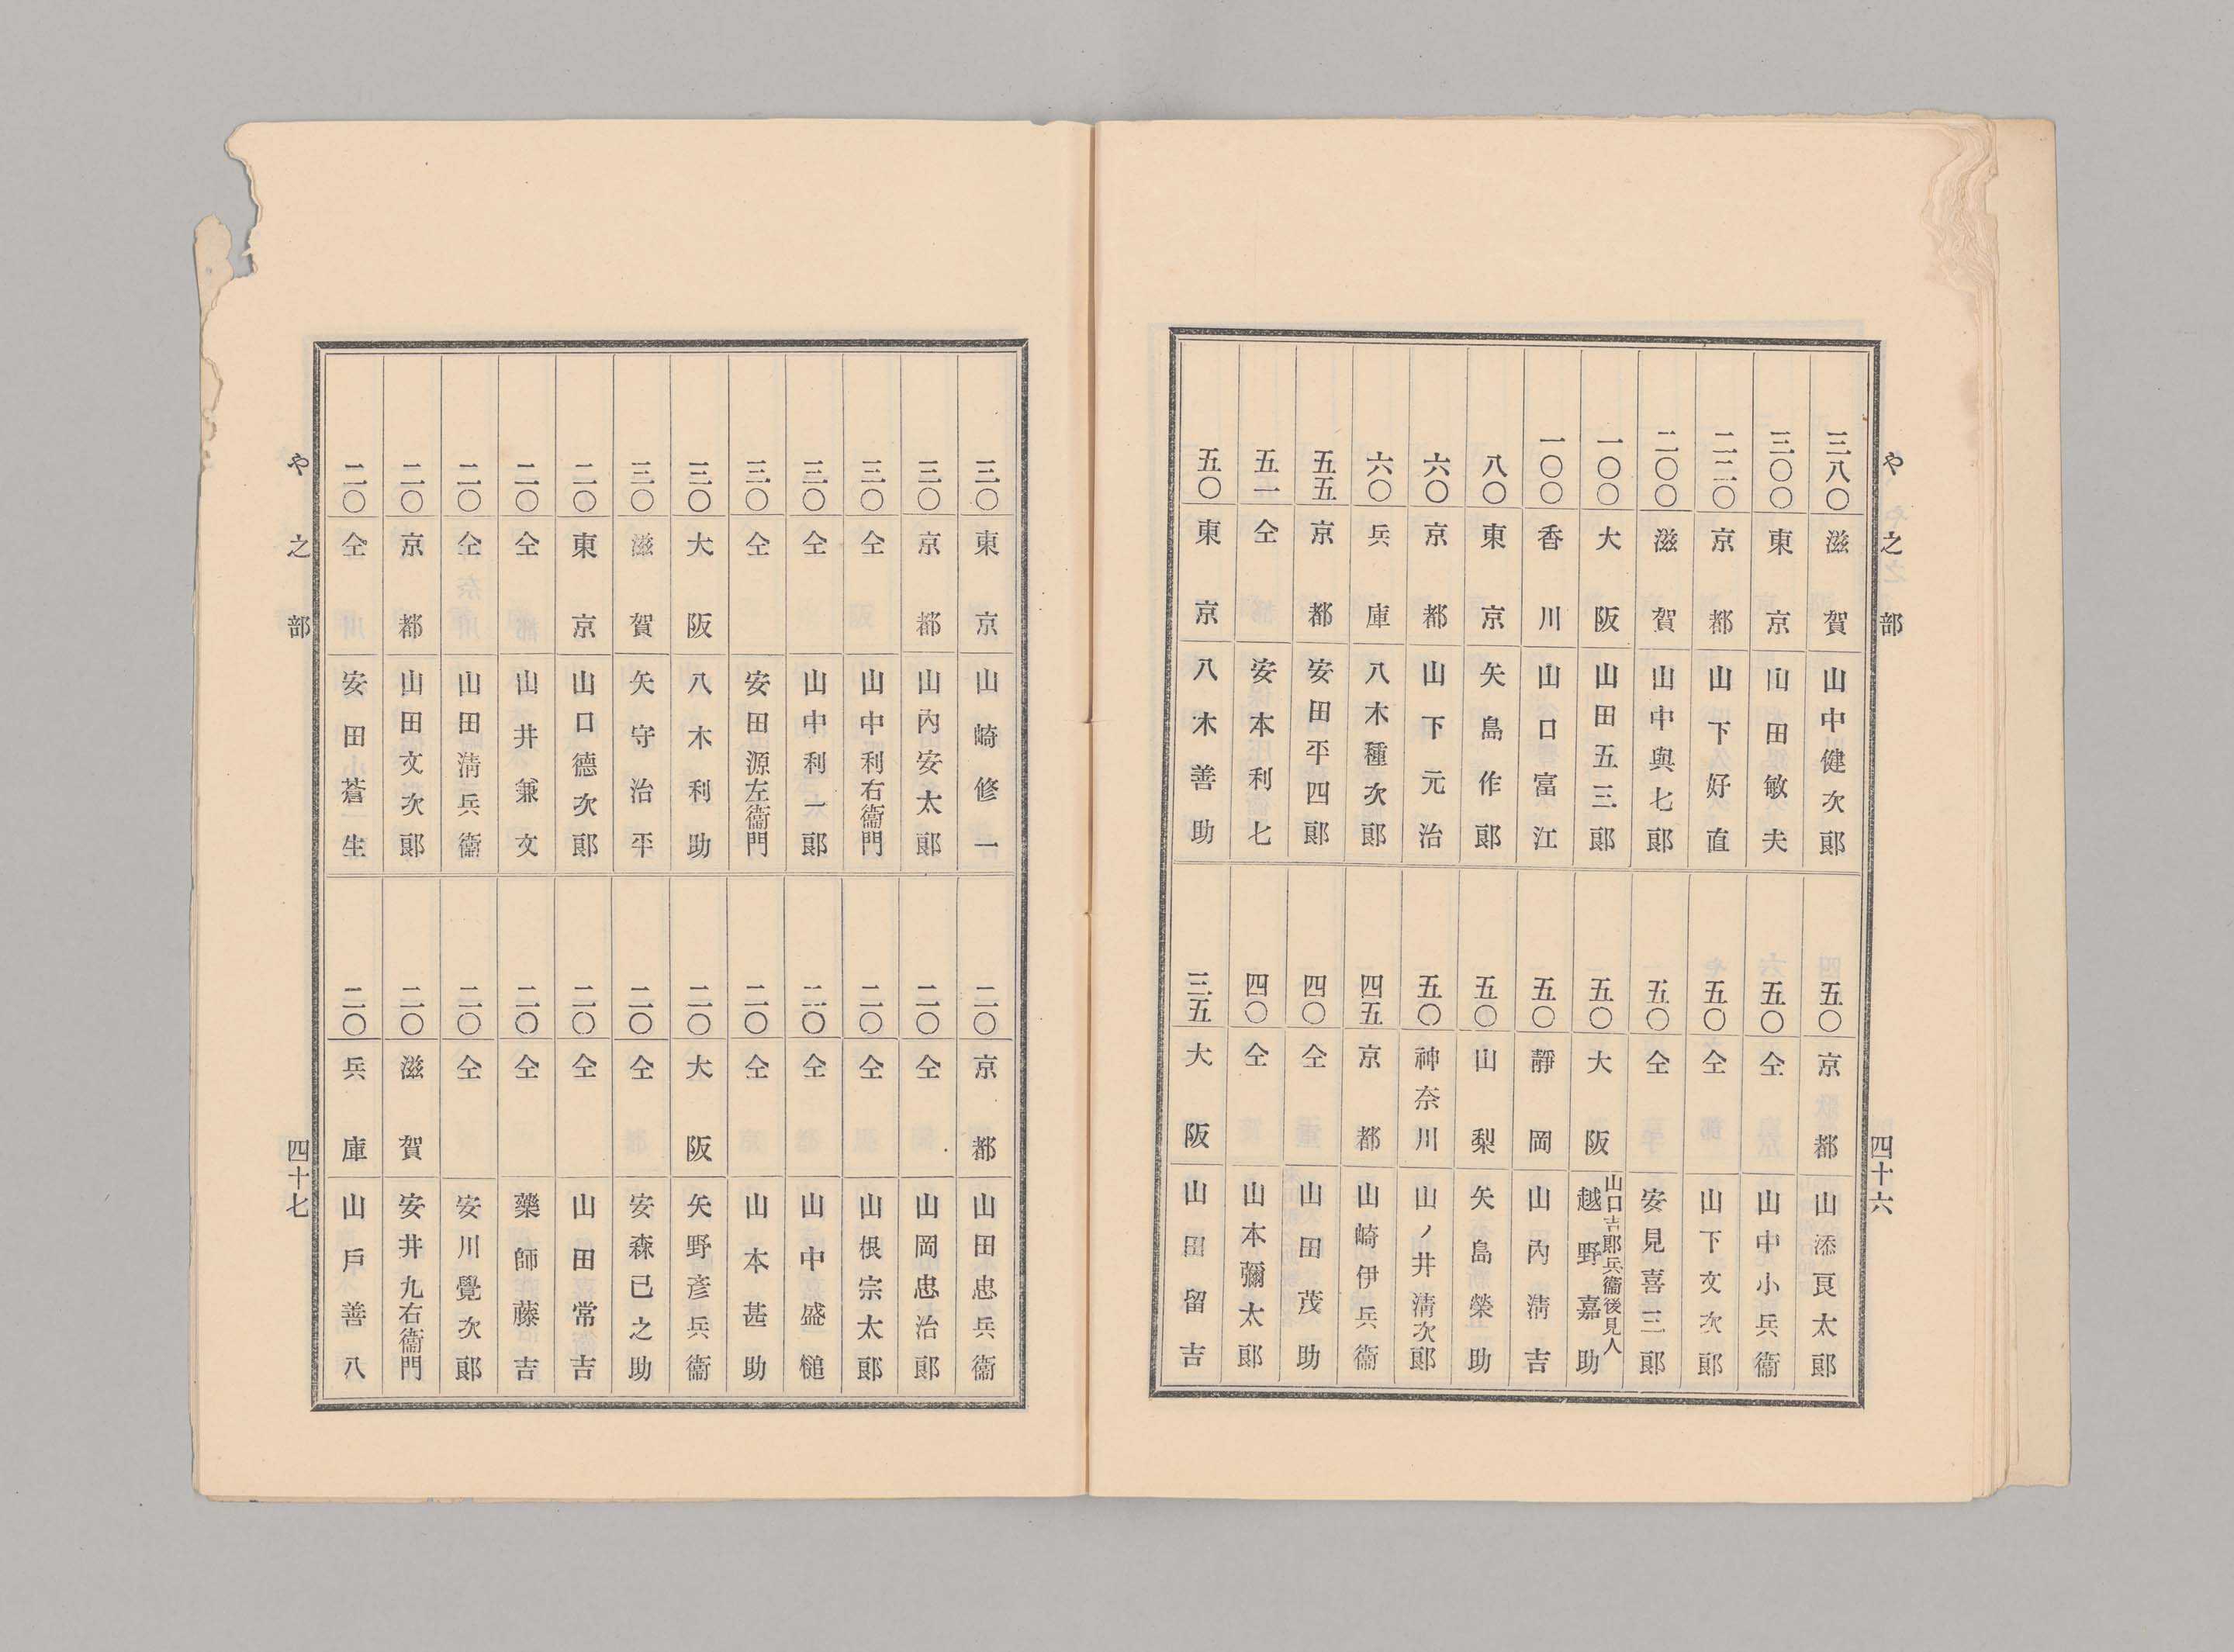 や之部
四十六
三八〇 滋賀 山中健次郎
三〇〇 東京 山田敏夫
二二〇 京都 山下好直
二〇〇 滋賀 山中與七郎
一〇〇 大阪 山田五三郎
一〇〇 香川 山口富江
八〇 東京 矢島作郎
六〇 京都 山下元治
六〇 兵庫 八木種次郎
五五 京都 安田平四郎
五一 仝 安本利七
五〇 東京 八木善助
五〇 京都 山添良太郎
五〇 仝 山中小兵衞
五〇 仝 山下文次郎
五〇 仝 安見喜三郎
五〇 大阪 山口吉郎兵衞後見人 越野嘉助
五〇 靜岡 山內淸吉
五〇 山梨 矢島榮助
五〇 神奈川 山ノ井淸次郎
四五 京都 山崎伊兵衞
四〇 仝 山田茂助
四〇 仝 山本彌太郎
三五 大阪 山田留吉
や之部
四十七
三〇 東京 山崎修一
三〇 京都 山內安太郎
三〇 仝 山中利右衞門
三〇 仝 山中利一郎
三〇 仝 安田源左衞門
三〇 大阪 八木利助
三〇 滋賀 矢守治平
二〇 東京 山口德次郎
二〇 仝 山井兼文
二〇 仝 山田淸兵衞
二〇 京都 山田文次郎
二〇 仝 安田蒼生
二〇 京都 山田忠兵衞
二〇 仝 山岡忠治郎
二〇 仝 山根宗太郎
二〇 仝 山中盛槌
二〇 仝 山本甚助
二〇 大阪 矢野彥兵衞
二〇 仝 安森已之助
二〇 仝 山田常吉
二〇 仝 藥師藤吉
二〇 仝 安川覺次郎
二〇 滋賀 安井九右衞門
二〇 兵庫 山戶善八